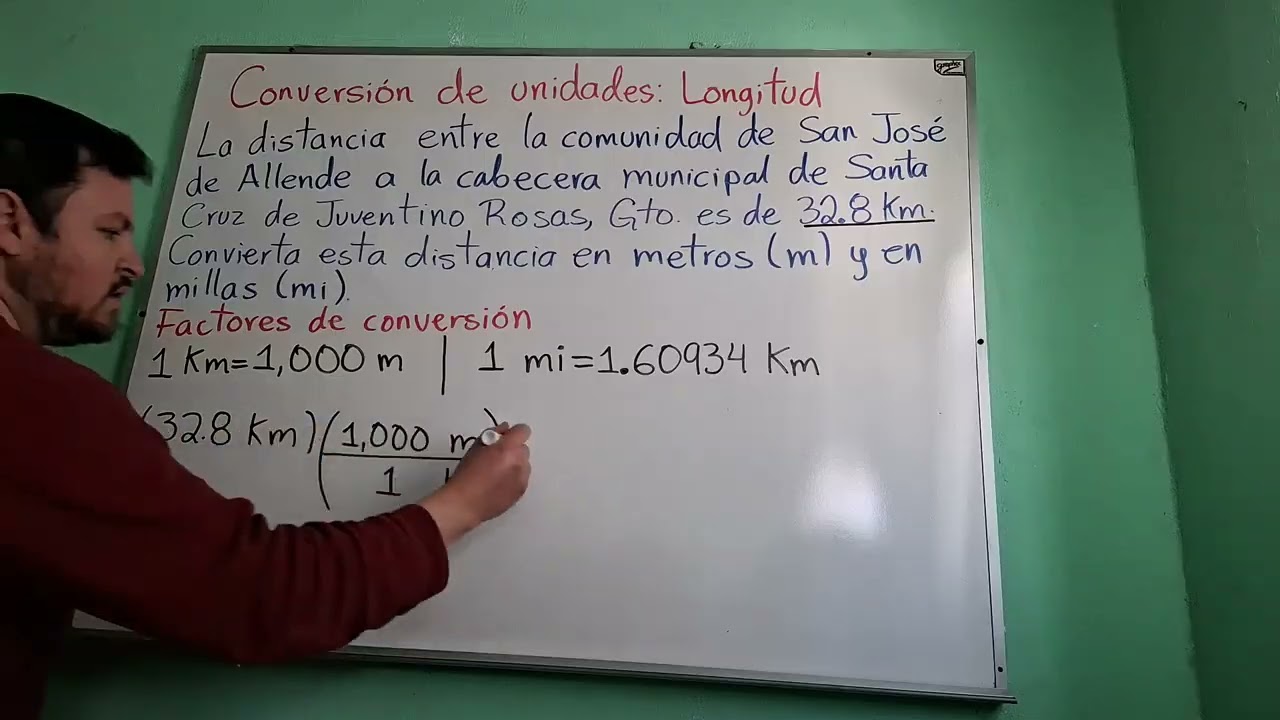 Conversión de unidades: Longitud
La distancia entre la comunidad de San José
de Allende a la cabecera municipal de Santa
Cruz de Juventino Rosas, Gto. es de 32.8 Km.
Convierta esta distancia en metros (m) y en
millas (mi).
Factores de conversión
1 Km=1,000 m | 1 mi=1.60934 Km
(32.8 Km)(1,000 m)
1